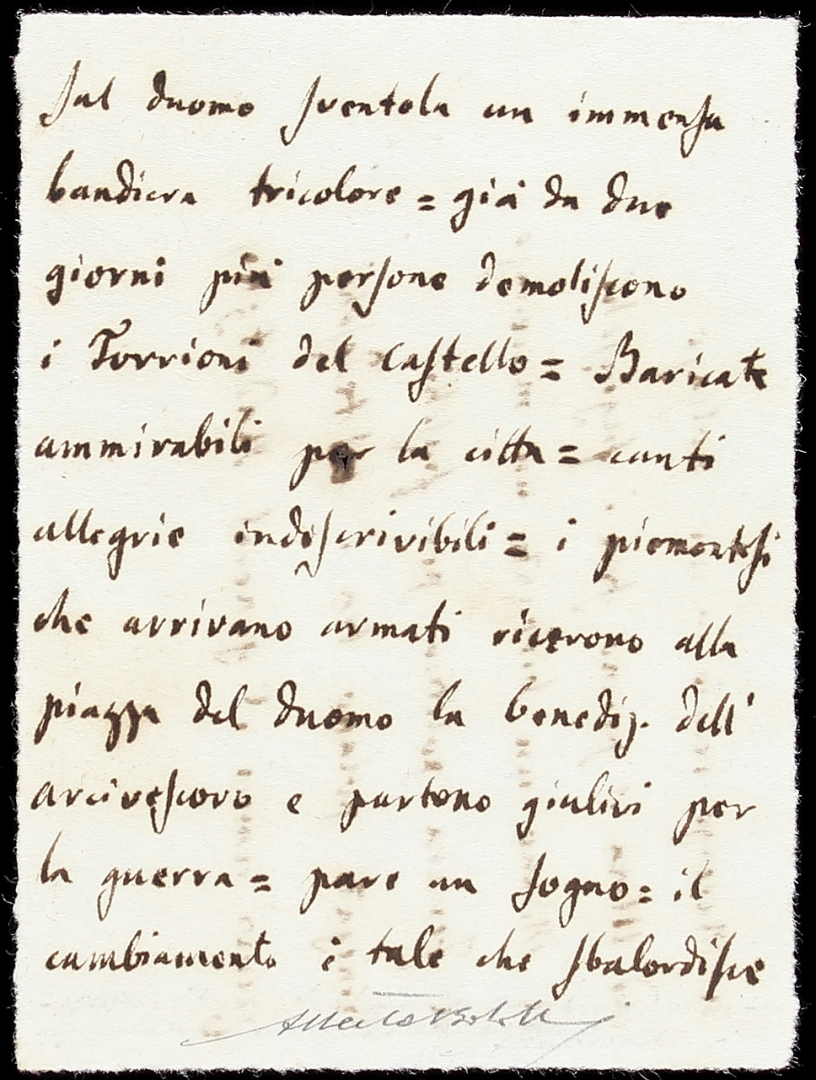 Sul duomo sventola un immensa
bandiera tricolore = già da due
giorni più persone demoliscono
i Torrioni del Castello = Baricate
ammirabili per la citta = canti
allegrie indiscrivibili = i piemontesi
che arrivano armati ricerono alla
piazza del duomo la benediz. dell'
arcivescovo e partono giulivi per
la guerra = pare un sogno = il
cambiamento è tale che sbalordisce